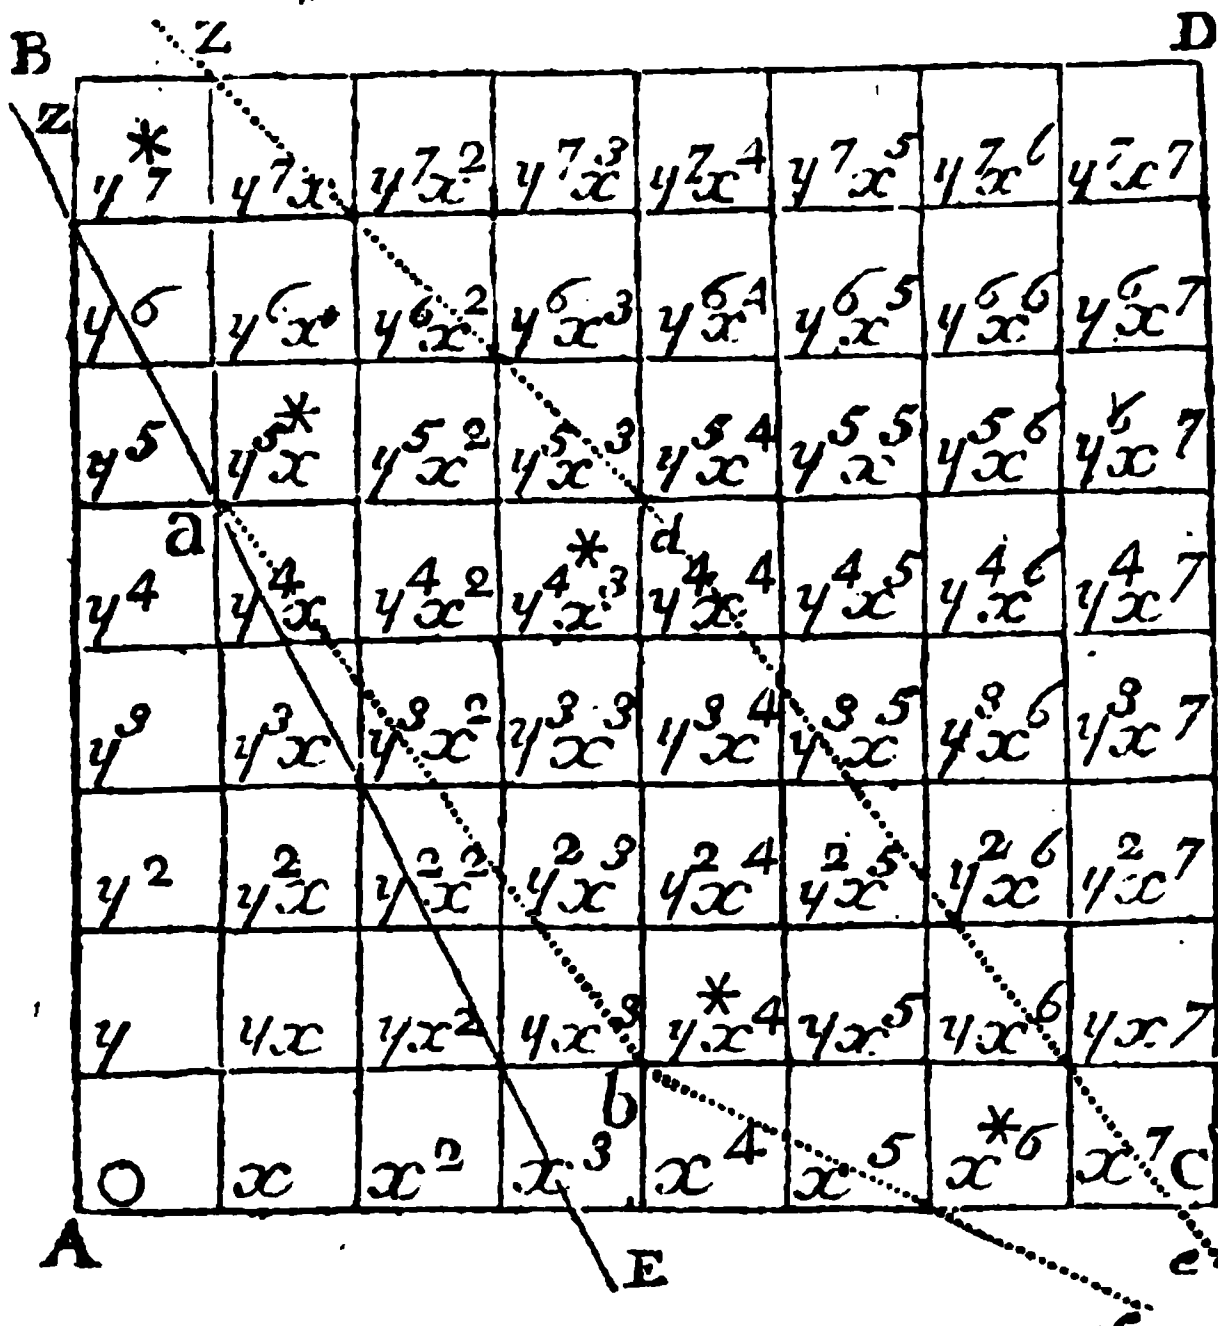 B Z D
z
* y⁷ y⁷x y⁷x² y⁷x³ y⁷x⁴ y⁷x⁵ y⁷x⁶ y⁷x⁷
y⁶ y⁶x y⁶x² y⁶x³ y⁶x⁴ y⁶x⁵ y⁶x⁶ y⁶x⁷
y⁵ * y⁵x y⁵x² y⁵x³ y⁵x⁴ y⁵x⁵ y⁵x⁶ y⁶x⁷
a d
y⁴ y⁴x y⁴x² * y⁴x³ y⁴x⁴ y⁴x⁵ y⁴x⁶ y⁴x⁷
y³ y³x y³x² y³x³ y³x⁴ y³x⁵ y³x⁶ y³x⁷
y² y²x y²x² y²x³ y²x⁴ y²x⁵ y²x⁶ y²x⁷
y yx yx² yx³ * yx⁴ yx⁵ yx⁶ yx⁷
b
O x x² x³ x⁴ x⁵ * x⁶ x⁷ C
A E e